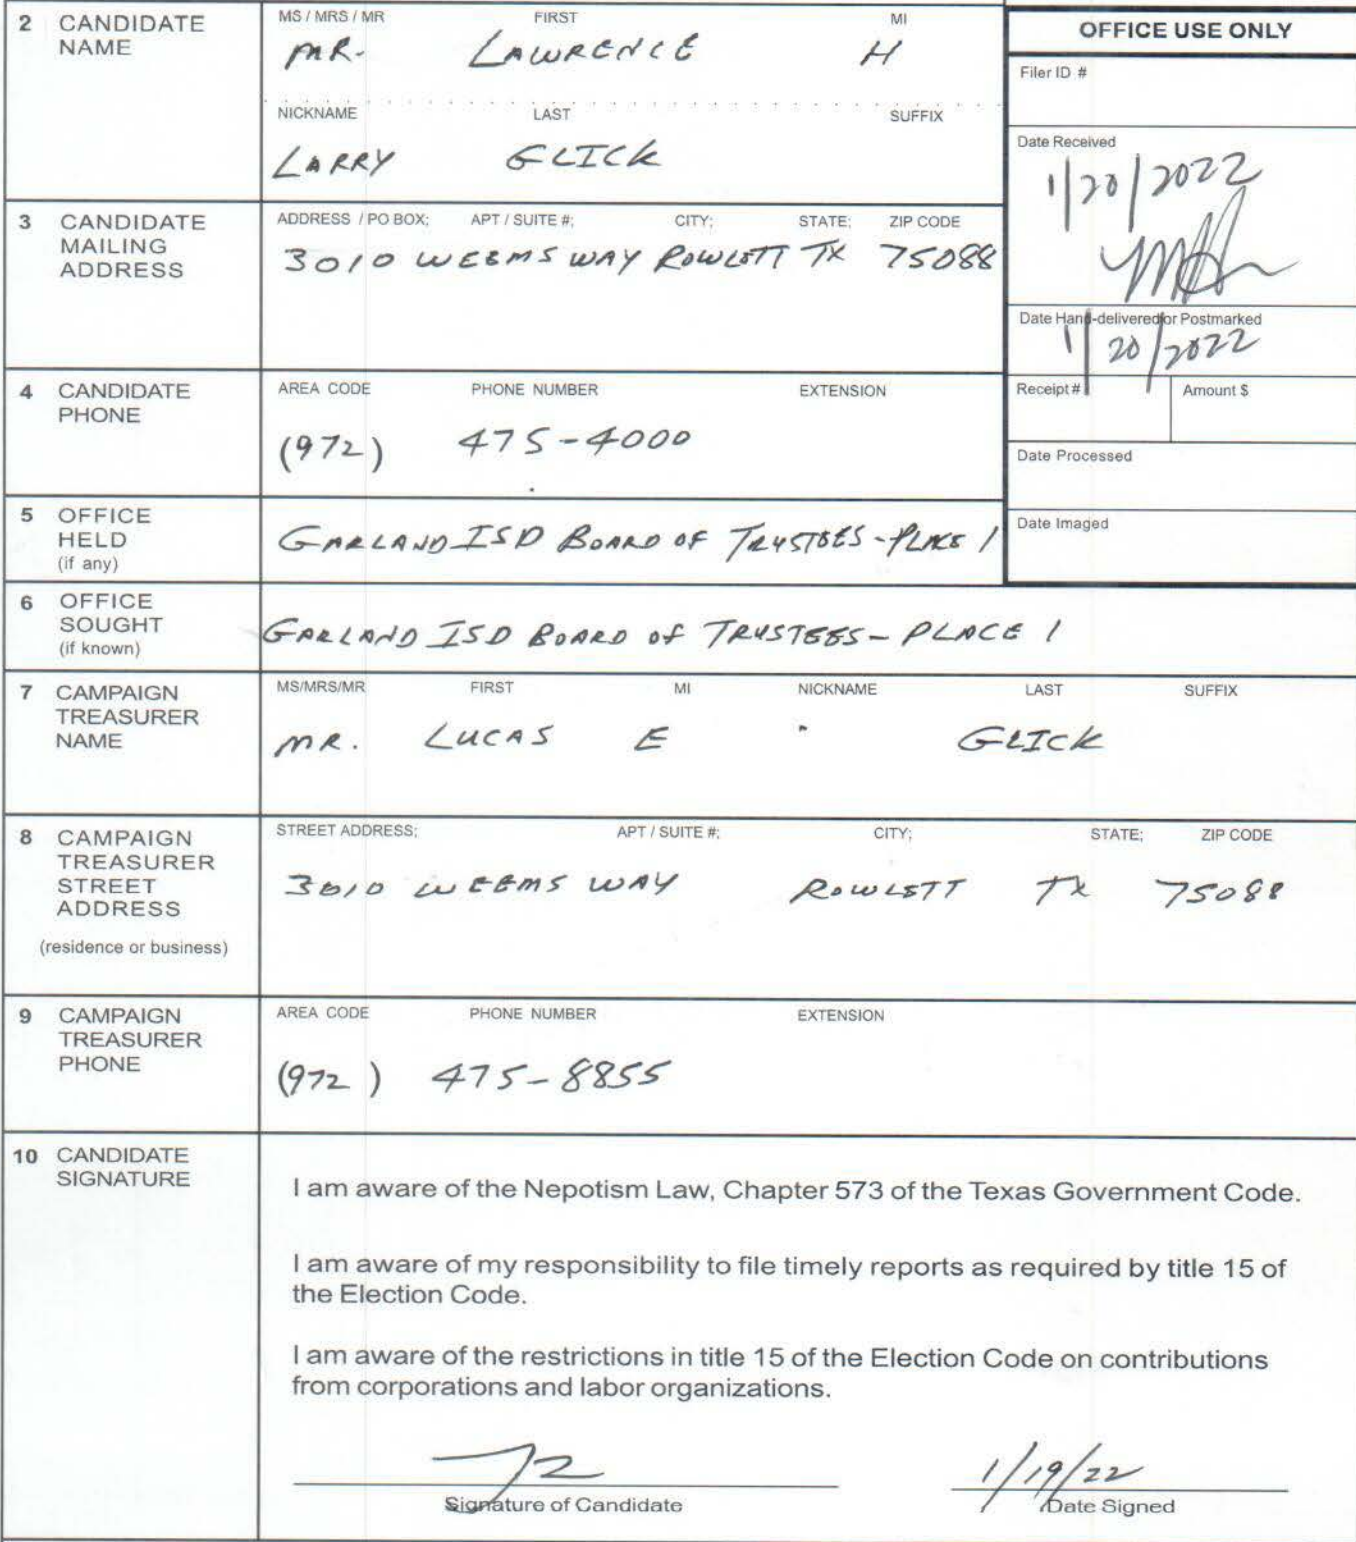 2 CANDIDATE NAME
MS / MRS / MR FIRST MI
MR. LAWRENCE H
NICKNAME LAST SUFFIX
LARRY GLICK
OFFICE USE ONLY
Filer ID #
Date Received
1/20/2022
Date Hand-delivered or Postmarked
1/20/2022
Receipt # Amount $
Date Processed
Date Imaged
3 CANDIDATE MAILING ADDRESS
ADDRESS / PO BOX; APT / SUITE #; CITY; STATE; ZIP CODE
3010 WEEMS WAY ROWLETT TX 75088
4 CANDIDATE PHONE
AREA CODE PHONE NUMBER EXTENSION
(972) 475-4000
5 OFFICE HELD (if any)
GARLAND ISD BOARD OF TRUSTEES - PLACE 1
6 OFFICE SOUGHT (if known)
GARLAND ISD BOARD OF TRUSTEES - PLACE 1
7 CAMPAIGN TREASURER NAME
MS/MRS/MR FIRST MI NICKNAME LAST SUFFIX
MR. LUCAS E GLICK
8 CAMPAIGN TREASURER STREET ADDRESS (residence or business)
STREET ADDRESS; APT / SUITE #; CITY; STATE; ZIP CODE
3010 WEEMS WAY ROWLETT TX 75088
9 CAMPAIGN TREASURER PHONE
AREA CODE PHONE NUMBER EXTENSION
(972) 475-8855
10 CANDIDATE SIGNATURE
I am aware of the Nepotism Law, Chapter 573 of the Texas Government Code.
I am aware of my responsibility to file timely reports as required by title 15 of
the Election Code.
I am aware of the restrictions in title 15 of the Election Code on contributions
from corporations and labor organizations.
1/19/22
Signature of Candidate Date Signed